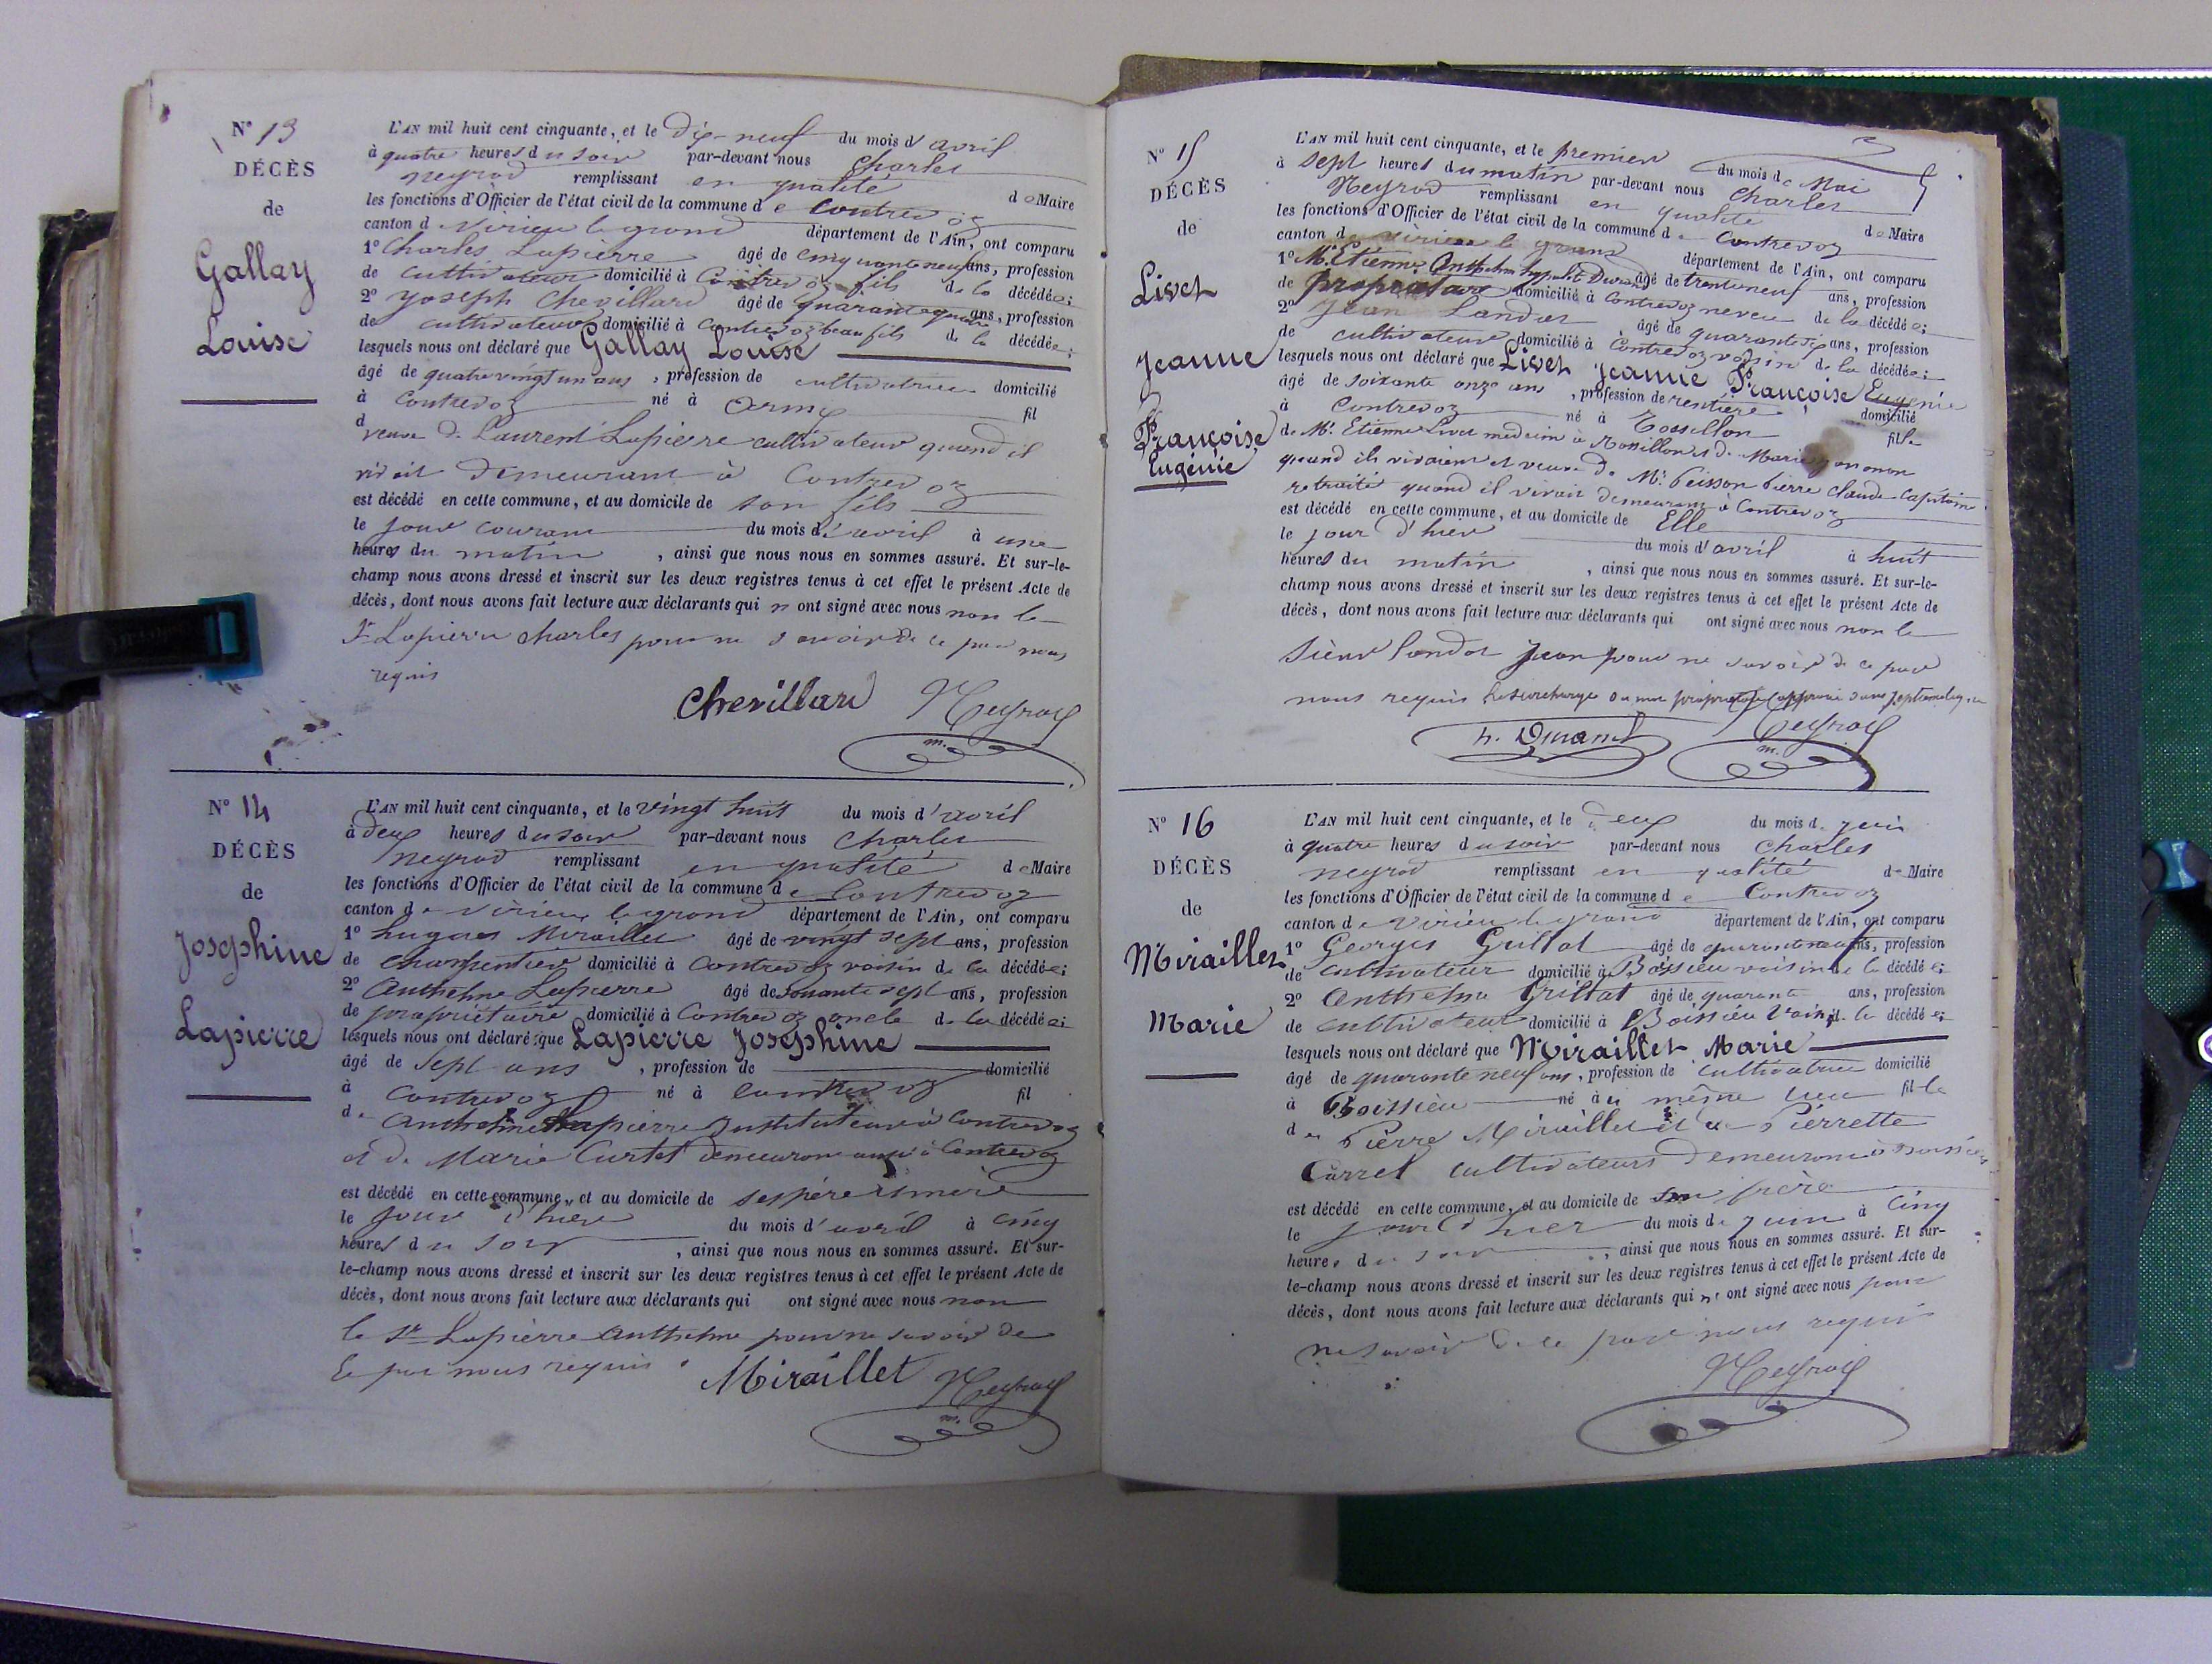 N° 13
DÉCÈS
de
Gallay
Louise
L'AN mil huit cent cinquante, et le dix-neuf du mois d'avril
à quatre heures du soir par-devant nous Charles
Neyrod remplissant en qualité de Maire
les fonctions d'Officier de l'état civil de la commune de Contrevoz
canton de Virieu le grand département de l'Ain, ont comparu
1° Charles Lapierre âgé de cinquante neuf ans, profession
de cultivateur domicilié à Contrevoz fils de la décédée;
2° Joseph Chevillard âgé de quarante quatre ans, profession
de cultivateur domicilié à Contrevoz beau fils de la décédée;
lesquels nous ont déclaré que Gallay Louise
âgé de quatre vingt un ans, profession de cultivatrice domicilié
à Contrevoz né à fil
veuve de Laurent Lapierre cultivateur quand il
vivait demeurant à Contrevoz
est décédé en cette commune, et au domicile de son fils
le jour courant du mois d'avril à une
heures du matin, ainsi que nous nous en sommes assuré. Et sur-le-
champ nous avons dressé et inscrit sur les deux registres tenus à cet effet le présent Acte de
décès, dont nous avons fait lecture aux déclarants qui ont signé avec nous non le
Sr Lapierre Charles pour ne savoir de ce par nous
requis
Chevillard Neyrod
m.
N° 14
DÉCÈS
de
Josephine
Lapierre
L'AN mil huit cent cinquante, et le vingt huit du mois d'avril
à deux heures du soir par-devant nous Charles
Neyrod remplissant en qualité de Maire
les fonctions d'Officier de l'état civil de la commune de Contrevoz
canton de Virieu le grand département de l'Ain, ont comparu
1° hugues Miraillet âgé de vingt sept ans, profession
de charpentier domicilié à Contrevoz voisin de la décédée;
2° Anthelme Lapierre âgé de soixante sept ans, profession
de propriétaire domicilié à Contrevoz oncle de la décédée;
lesquels nous ont déclaré que Lapierre Josephine
âgé de sept ans, profession de domicilié
à Contrevoz né à Contrevoz fil
de Anthelme Lapierre Instituteur à Contrevoz
et de Marie Curtet demeurant aussi à Contrevoz
est décédé en cette commune, et au domicile de ses père et mère
le jour d'hier du mois d'avril à cinq
heures du soir, ainsi que nous nous en sommes assuré. Et sur-
le-champ nous avons dressé et inscrit sur les deux registres tenus à cet effet le présent Acte de
décès, dont nous avons fait lecture aux déclarants qui ont signé avec nous non
le Sr Lapierre Anthelme pour ne savoir de
ce par nous requis.
Miraillet Neyrod
m.
N° 15
DÉCÈS
de
Livet
Jeanne
Françoise
Eugénie
L'AN mil huit cent cinquante, et le premier du mois de Mai
à sept heures du matin par-devant nous Charles
Neyrod remplissant en qualité de Maire
les fonctions d'Officier de l'état civil de la commune de Contrevoz
canton de Virieu le grand département de l'Ain, ont comparu
1° Mr Etienne Anthelme hyppolite Durand âgé de trente neuf ans, profession
de propriétaire domicilié à Contrevoz neveu de la décédée;
2° Jean Landot âgé de quarante ans, profession
de cultivateur domicilié à Contrevoz voisin de la décédée;
lesquels nous ont déclaré que Livet Jeanne Françoise Eugénie
âgé de soixante onze ans, profession de rentière domicilié
à Contrevoz né à Rossillon fille
de Mr Etienne Livet médecin à Rossillon et de Marie
quand ils vivaient et veuve de Mr Peisson Pierre Claude Capitaine
retraité quand il vivait demeurant à Contrevoz
est décédé en cette commune, et au domicile de Elle
le jour d'hier du mois d'avril à huit
heures du matin, ainsi que nous nous en sommes assuré. Et sur-le-
champ nous avons dressé et inscrit sur les deux registres tenus à cet effet le présent Acte de
décès, dont nous avons fait lecture aux déclarants qui ont signé avec nous non le
sieur Landot Jean pour ne savoir de ce par
nous requis la surcharge du mot propriétaire approuvé
h. Durand Neyrod
m.
N° 16
DÉCÈS
de
Miraillet
Marie
L'AN mil huit cent cinquante, et le deux du mois de juin
à quatre heures du soir par-devant nous Charles
Neyrod remplissant en qualité de Maire
les fonctions d'Officier de l'état civil de la commune de Contrevoz
canton de Virieu le grand département de l'Ain, ont comparu
1° Georges Grillat âgé de quarante neuf ans, profession
de cultivateur domicilié à Boissieu voisin de la décédée;
2° Anthelme Grillat âgé de quarante ans, profession
de cultivateur domicilié à Boissieu voisin de la décédée;
lesquels nous ont déclaré que Miraillet Marie
âgé de quarante neuf ans, profession de cultivatrice domicilié
à Boissieu né au même lieu fille
de Pierre Miraillet et de Pierrette
Carrel cultivateurs demeurant à Boissieu
est décédé en cette commune, et au domicile de son frère
le jour d'hier du mois de juin à cinq
heures du soir, ainsi que nous nous en sommes assuré. Et sur-
le-champ nous avons dressé et inscrit sur les deux registres tenus à cet effet le présent Acte de
décès, dont nous avons fait lecture aux déclarants qui n'ont signé avec nous pour
ne savoir de ce par nous requis
Neyrod